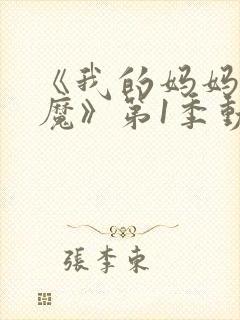 《我的妈妈
魔》第1季動
張李東